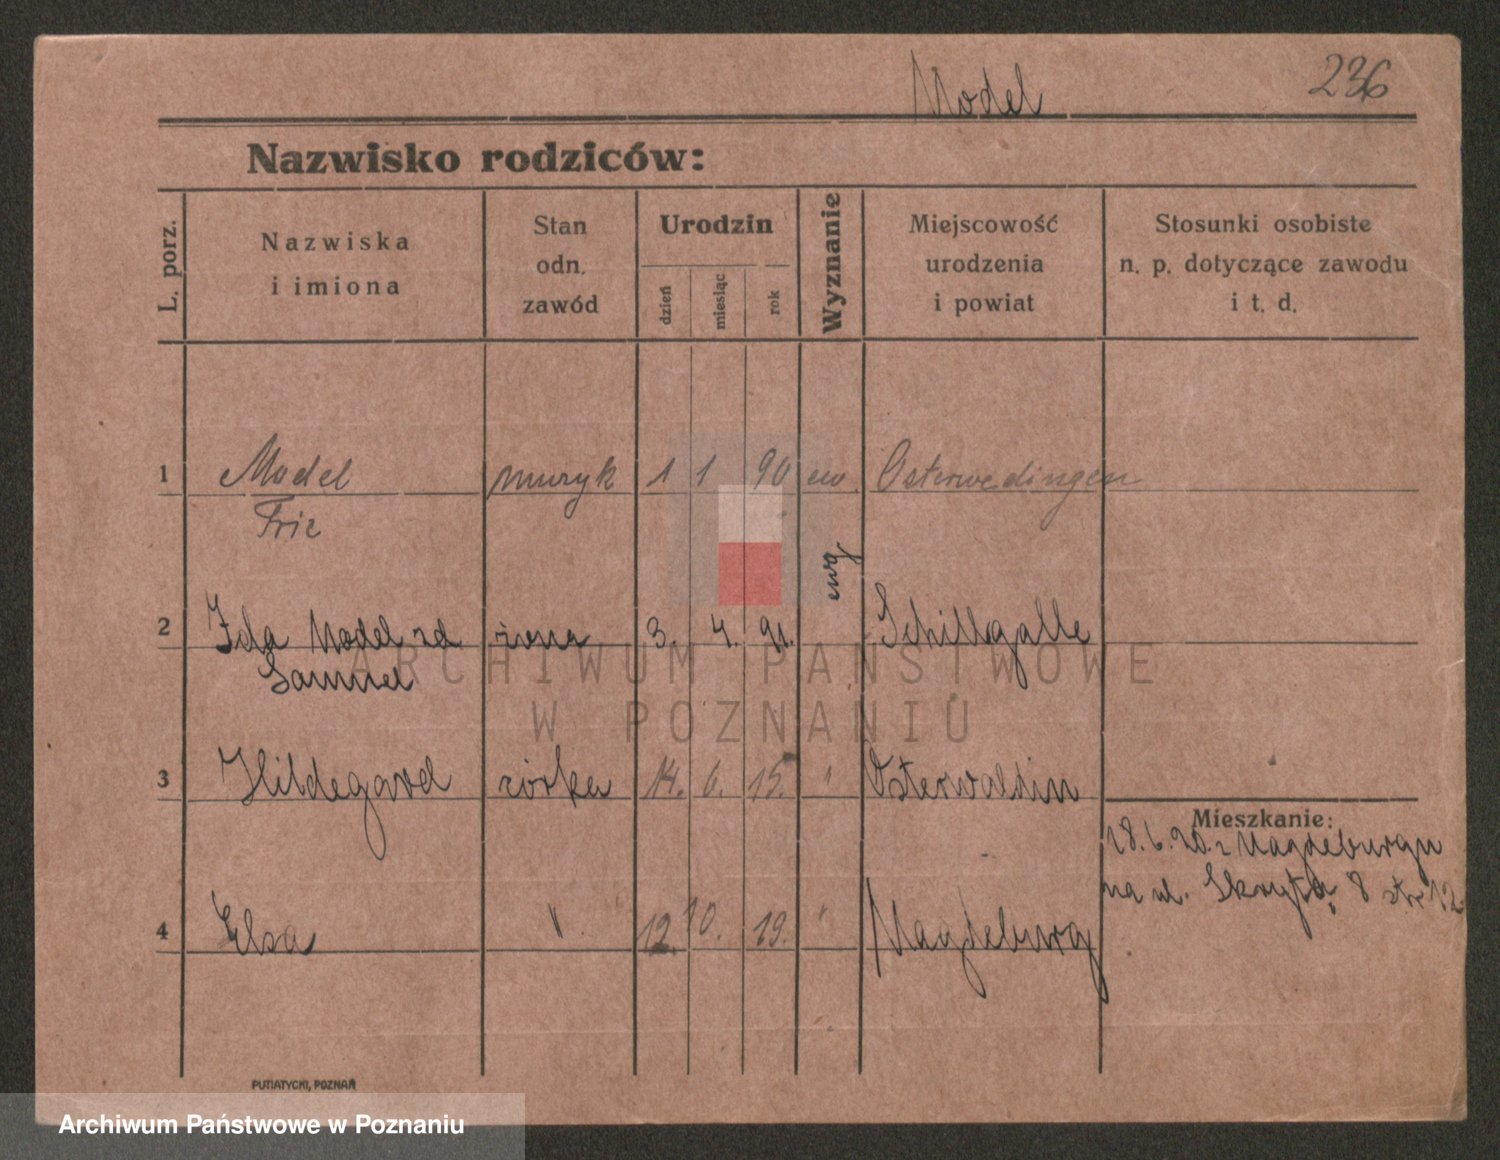 Model
236
Nazwisko rodziców:
L. porz.
Nazwiska
i imiona
Stan
odn.
zawód
Urodzin
dzień
miesiąc
rok
Wyznanie
Miejscowość
urodzenia
i powiat
Stosunki osobiste
n. p. dotyczące zawodu
i t. d.
1 Model muzyk 1 1 90 ew. Osterwedingen
Fric
ewg
2 Ida Model zd żona 3. 4. 91. Schillgalle
Samuel
3 Hildegard córka 14. 6. 15. " Osterwaldin
Mieszkanie:
18.6.20. z Magdeburgu
na ul. Skryta 8 str 12.
4 Elsa " 12. 10. 19. " Magdeburg
PUTIATYCKI, POZNAŃ
ARCHIWUM PAŃSTWOWE
W POZNANIU
Archiwum Państwowe w Poznaniu